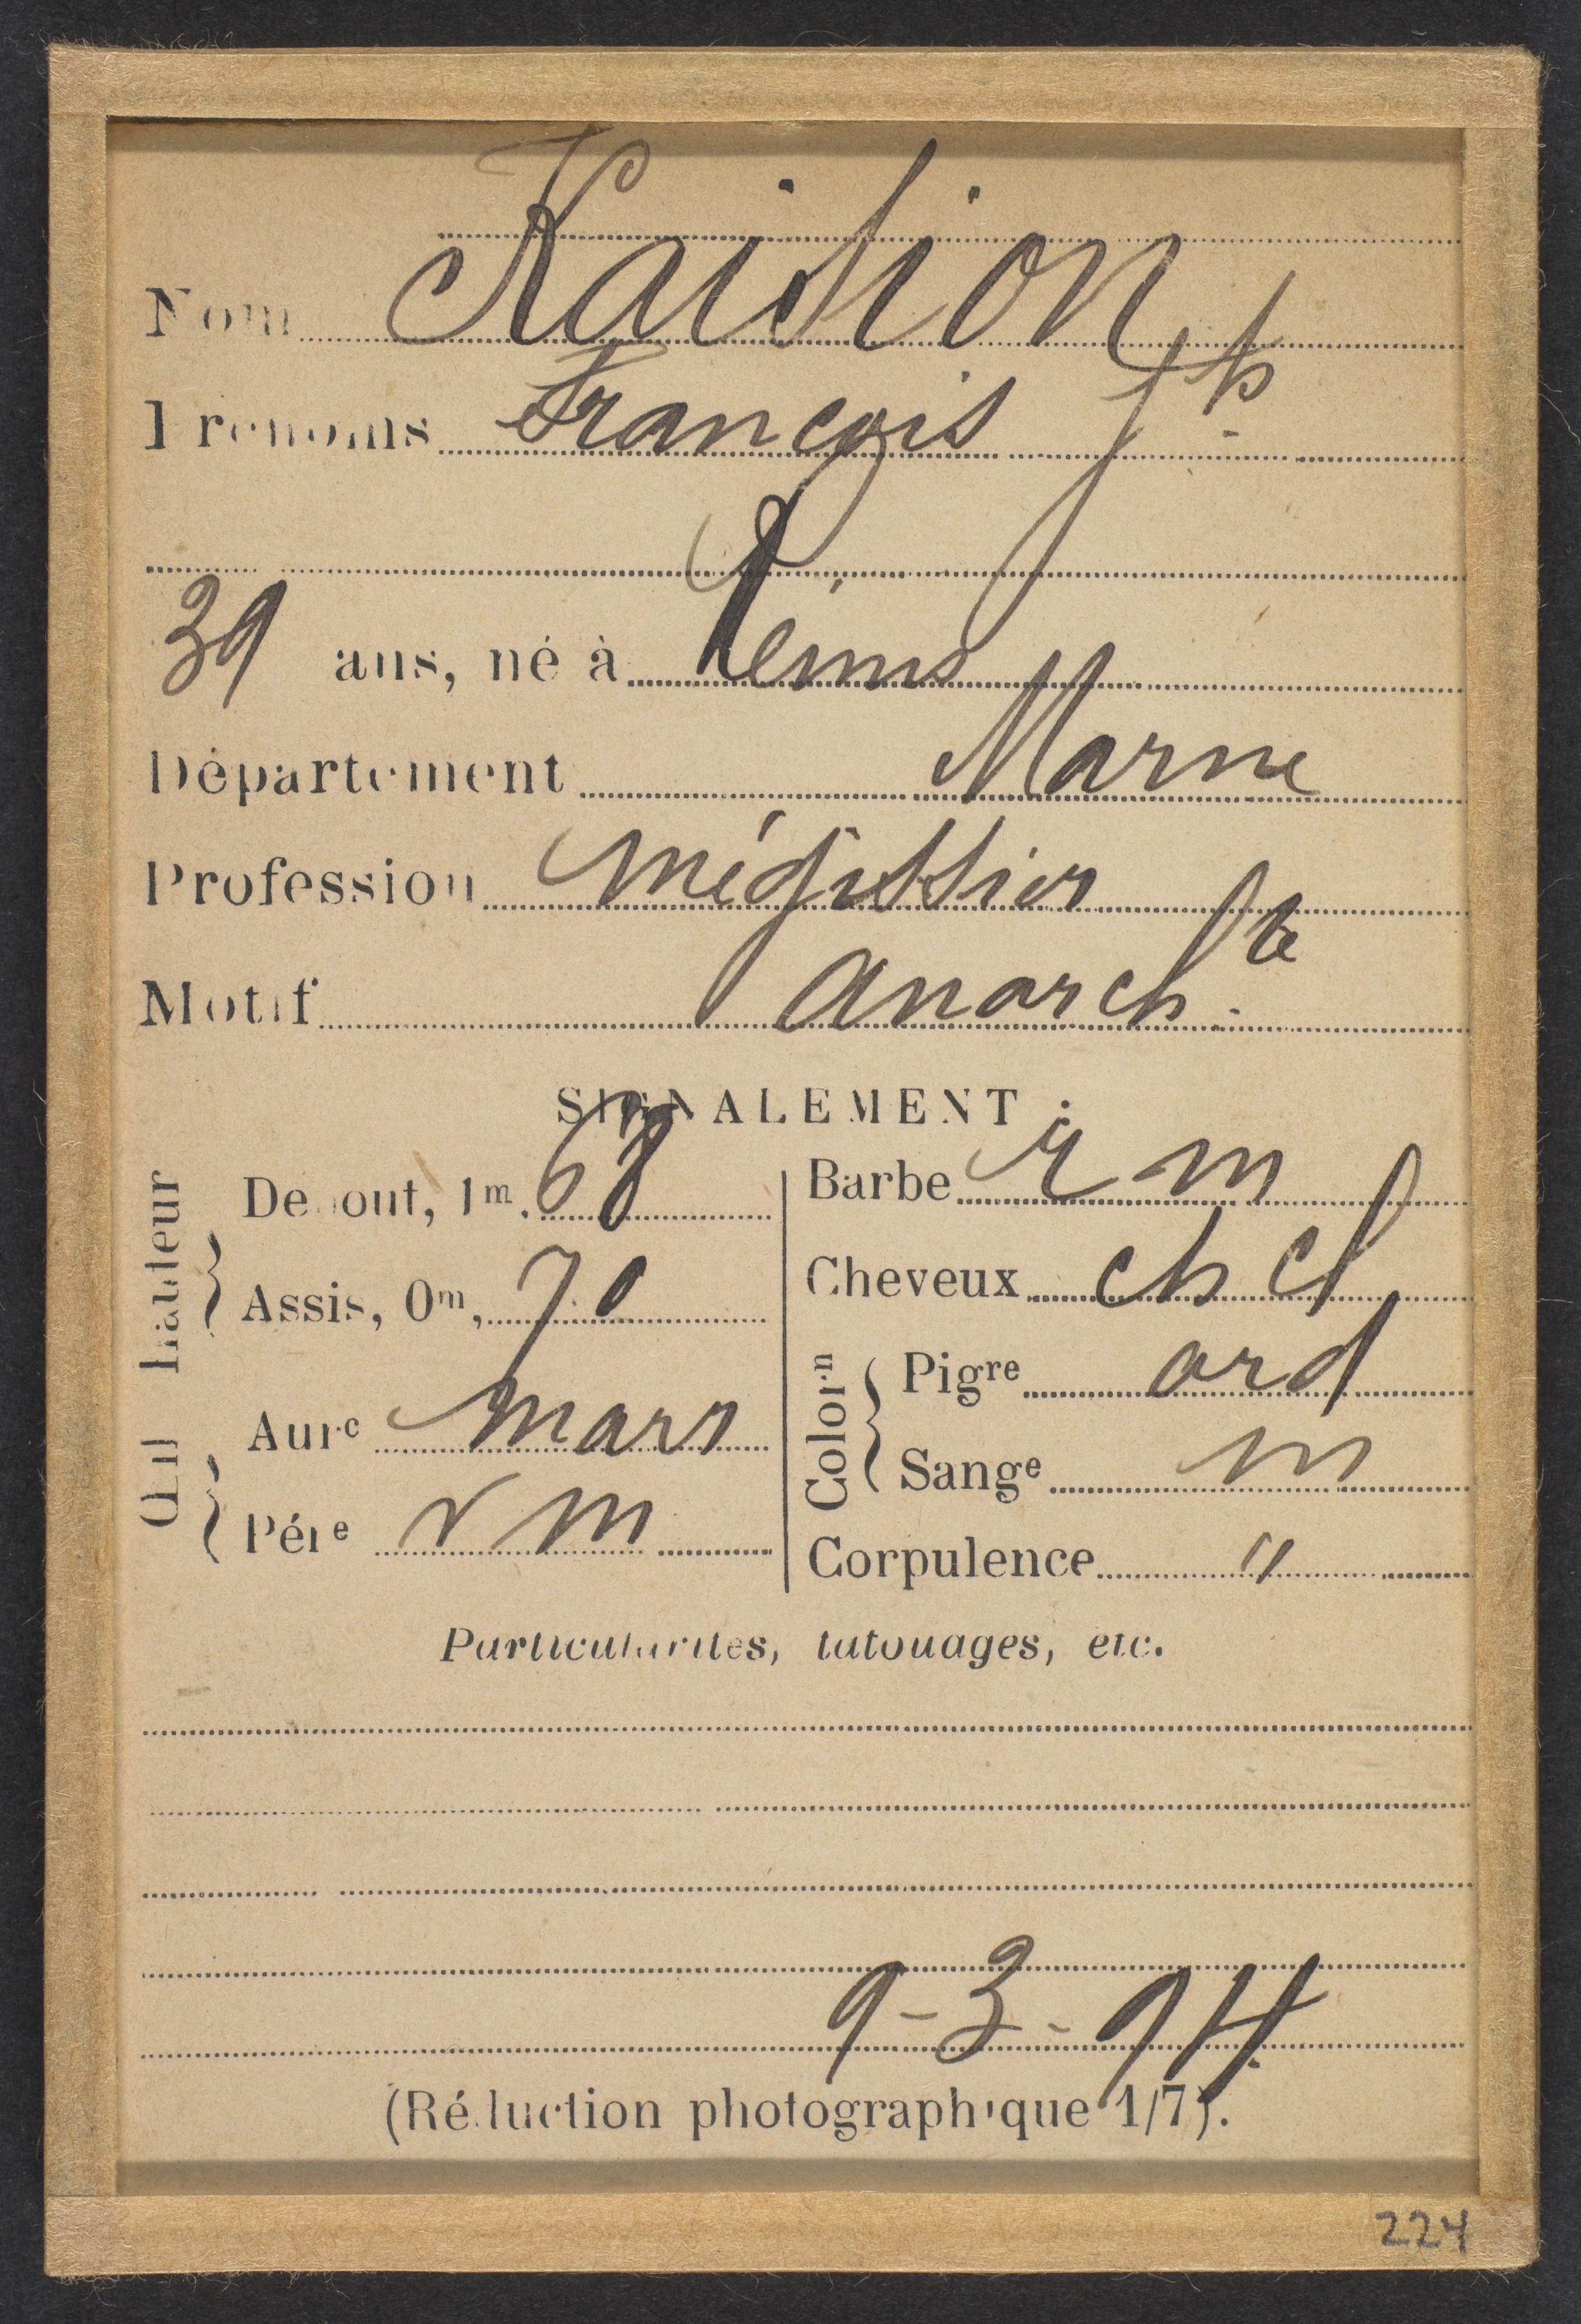 Nom Raision
Prénoms François Jph
39 ans, né à Reims
Département Marne
Profession mégissier
Motif Anarch.te
SIGNALEMENT :
Hauteur
Debout, 1m. 68
Assis, 0m, 70
Œil
Aure marr
Pére v m
Barbe r m
Cheveux ch cl
Colorn
Pigre ord
Sange m
Corpulence "
Particularités, tatouages, etc.
9-3-94
(Réduction photographique 1/7).
224